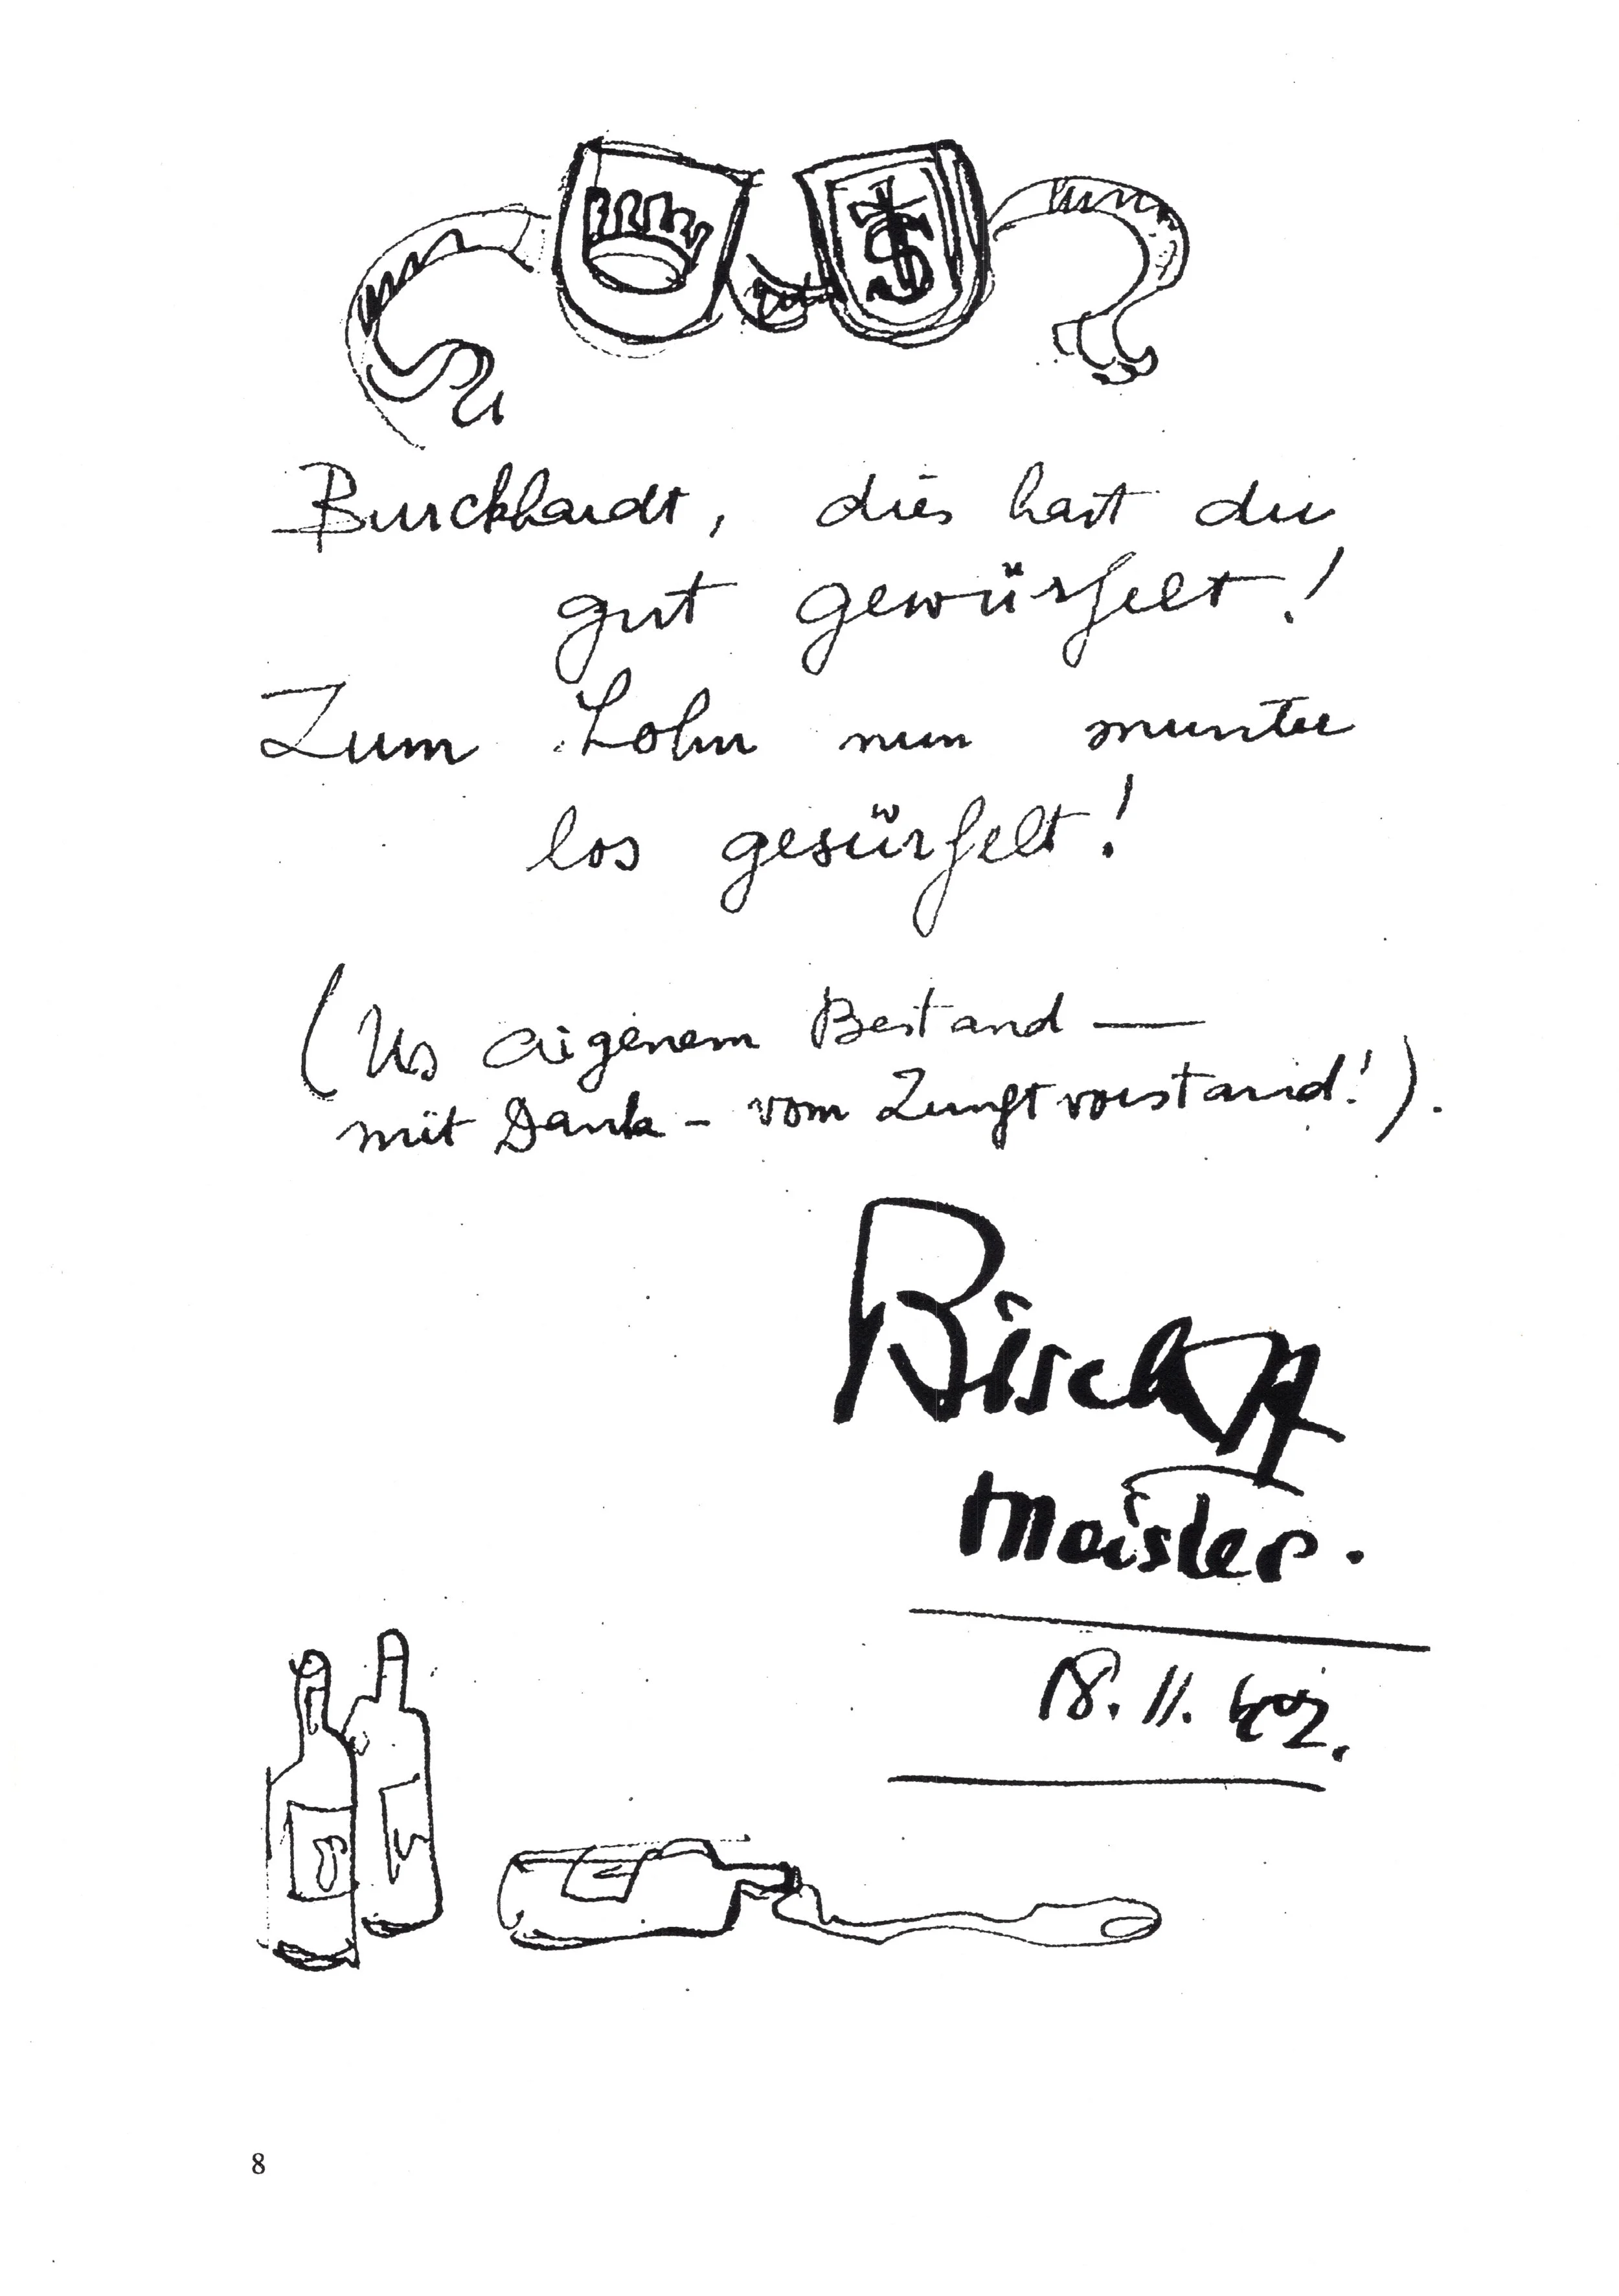 Burckhardt, dies hast du
gut gewürfelt!
Zum Lohn nun munter
los gesürfelt!
(Us aigenem Bestand —
mit Dank - vom Zunftvorstand!).
Bischoff
Meister.
18. 11. 42.
8